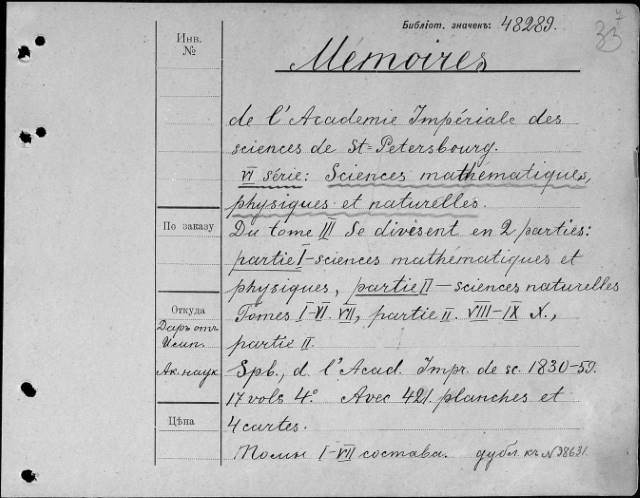 Библіот. значенъ: 48289.
33
Инв.
№
Mémoires
de l'Academie Impériale des
sciences de St=Petersbourg.
VI série: Sciences mathématiques,
physiques et naturelles.
По заказу
Du tome III Se divisent en 2 parties:
partie I - sciences mathématiques et
physiques, partie II — sciences naturelles
Откуда
Tomes I-VI. VII, partie II. VIII-IX X.,
Даръ отъ
Имп.
partie II.
Ак. наук
Spb., d. l'Acad. Impr. de sc. 1830-59.
17 vols 4° Avec 421. planches et
Цѣна
4 cartes.
I-VII состава. дубл. къ № 38631.